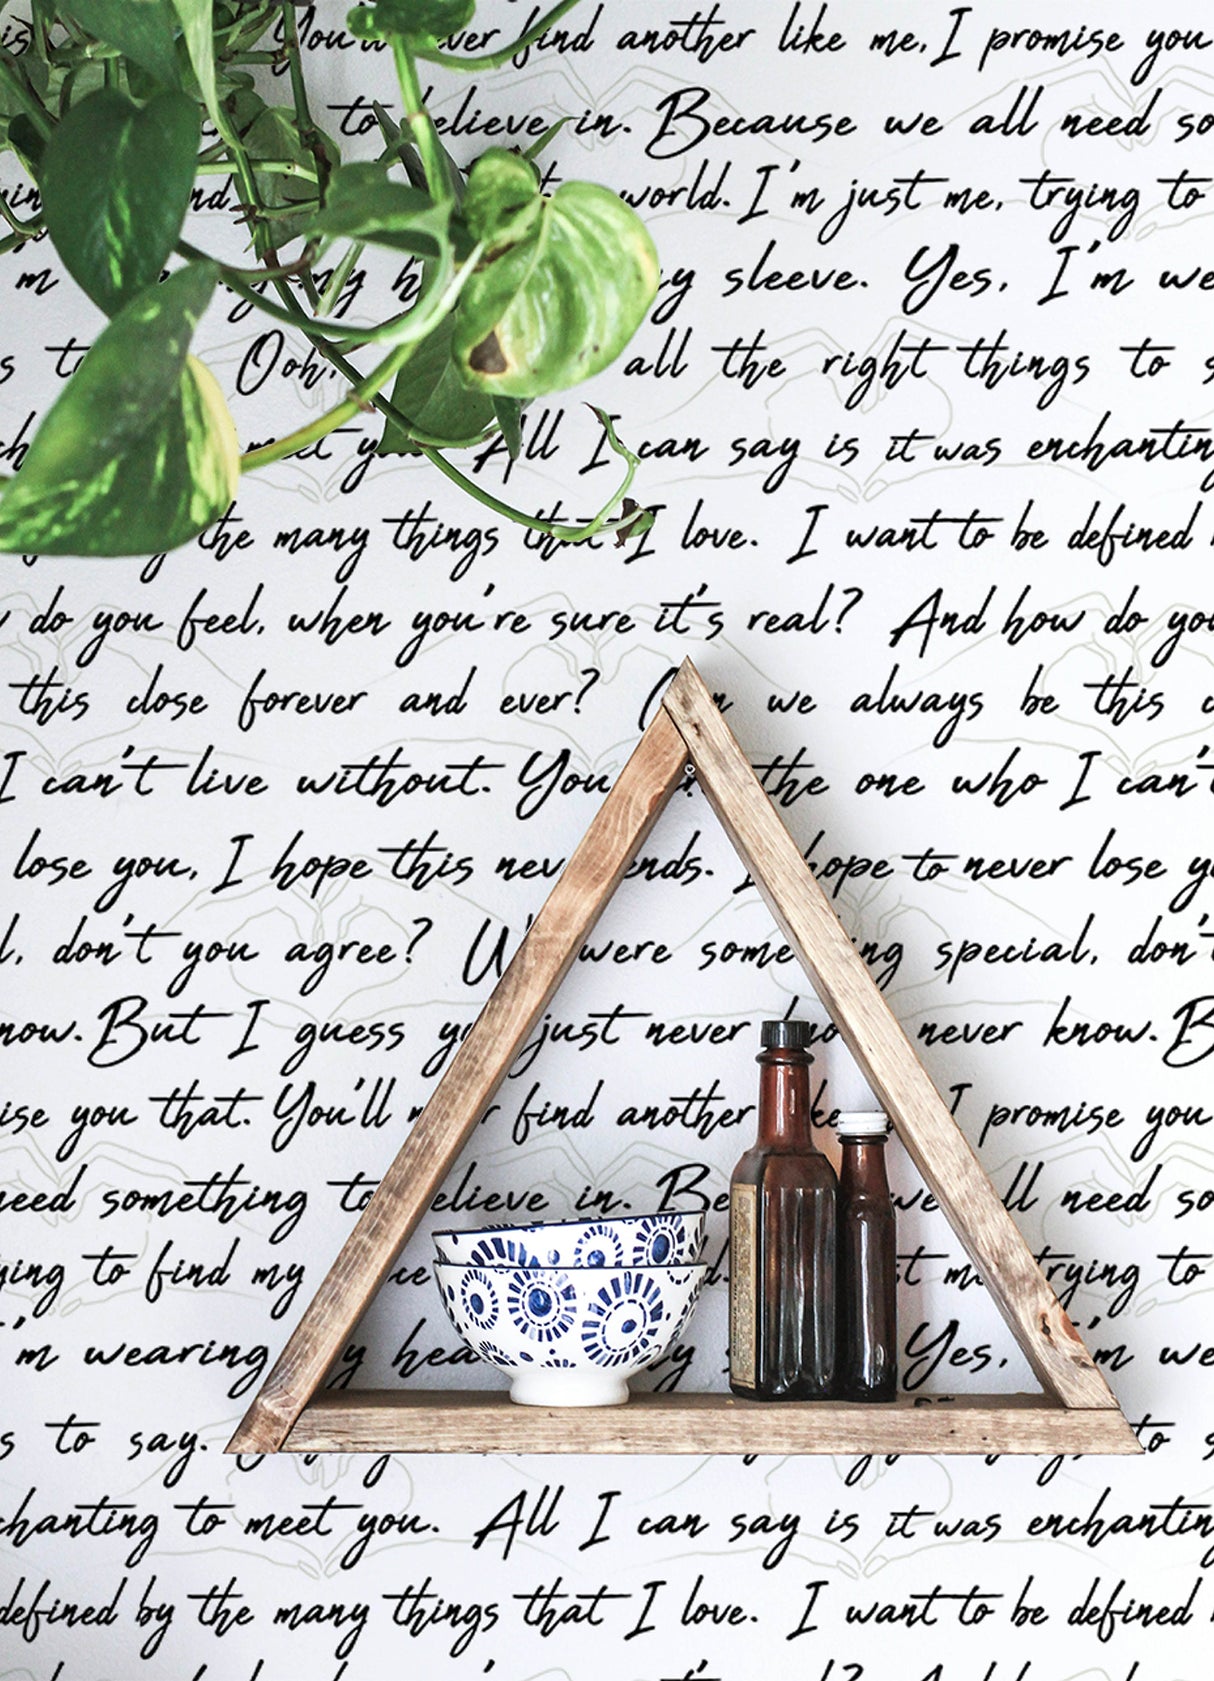 You'll ever find another like me, I promise you
to believe in. Because we all need so
nd world. I'm just me, trying to
m my h y sleeve. Yes, I'm we
s to Ooh, all the right things to s
ch meet you. All I can say is it was enchanting
the many things that I love. I want to be defined
do you feel, when you're sure it's real? And how do you
this close forever and ever? we always be this c
I can't live without. You the one who I can't
lose you, I hope this nev ends. I hope to never lose y
l, don't you agree? W were some ing special, don't
now. But I guess y just never no never know. B
ise you that. You'll n r find another ke I promise you
need something to elieve in. Be we ll need so
ying to find my ce d. st me trying to
'm wearing y hea y s Yes, 'm we
s to say. to s
chanting to meet you. All I can say is it was enchanting
defined by the many things that I love. I want to be defined